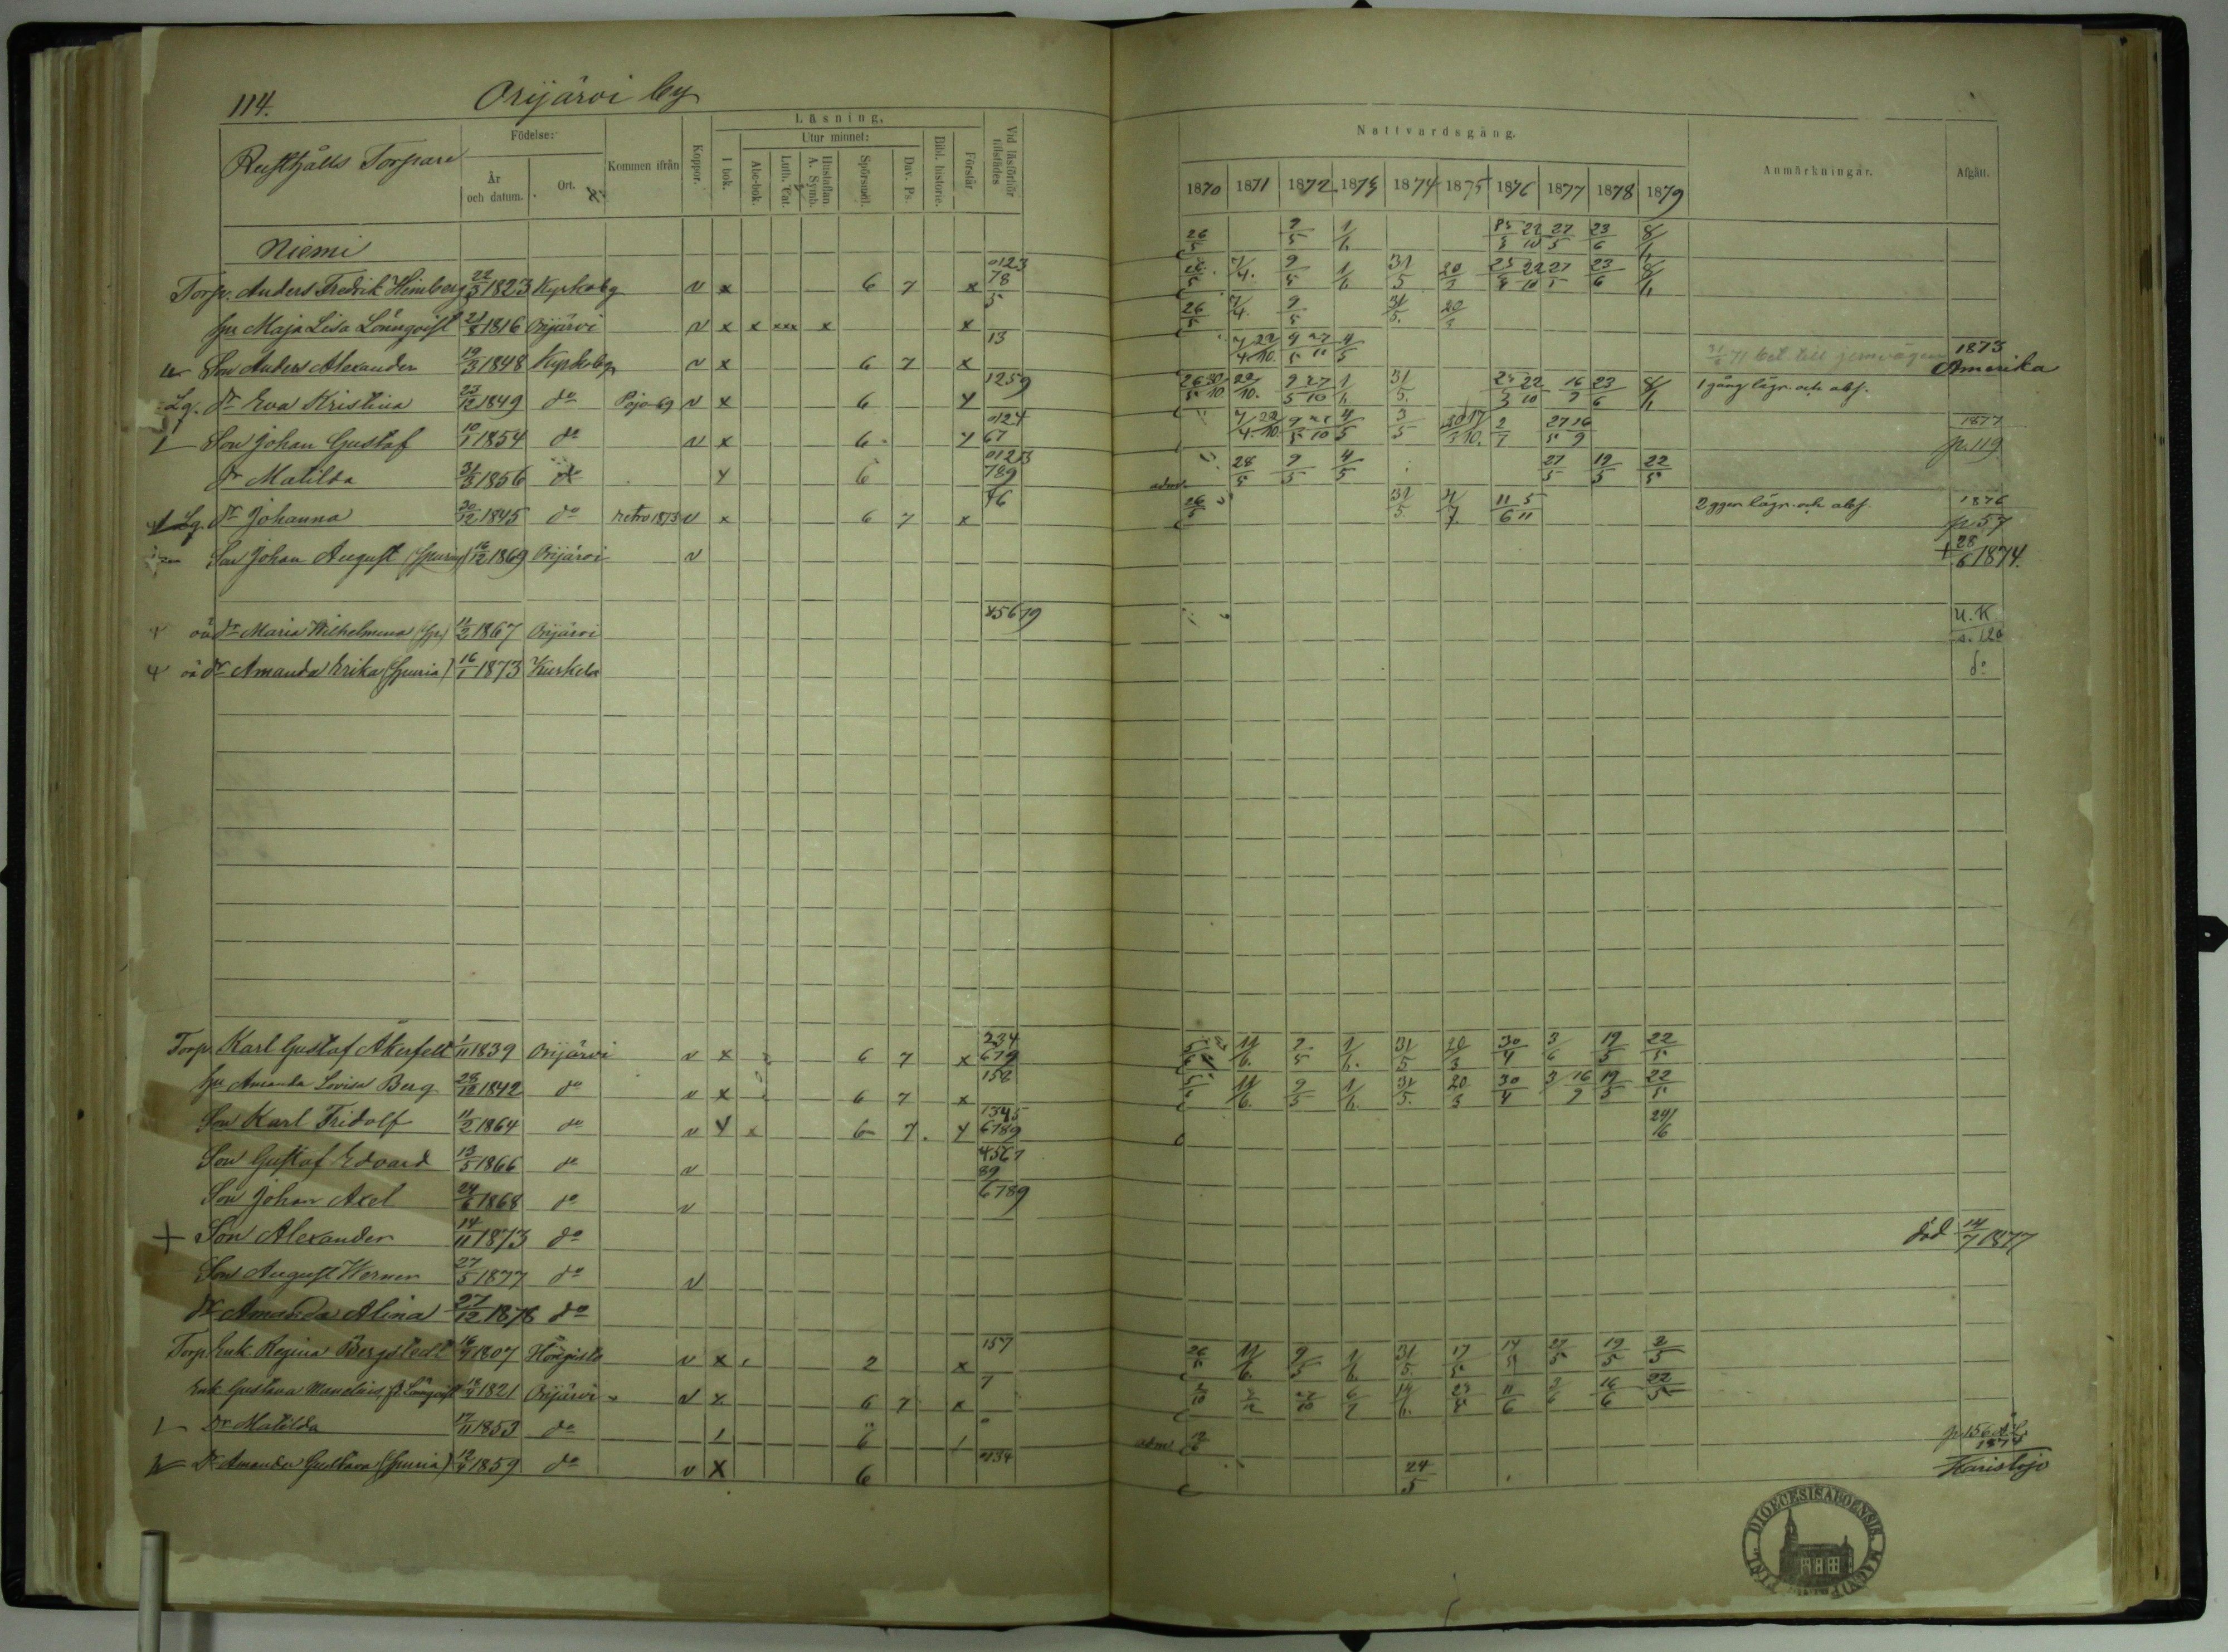 114. Orijärvi by
Rusthålls Torpare
Födelse:
År och datum.
Ort.
Kommen ifrån
Koppor.
Läsning.
I bok.
Utur minnet:
Abc-bok.
Luth. Cat.
Hustaflan A. Symb.
Spörsmål.
Dav. Ps.
Bibl. historie.
Förstår
Vid läsförhör tillstädes
Nattvardsgång.
1870 1871 1872 1873 1874 1875 1876 1877 1878 1879
Anmärkningar.
Afgått.
Niemi
26/5 9/5 1/6 22/10 27/5 23/6 8/6
Torp. Anders Fredrik Heinberg 22/3 1823 Kyrkoby v x 6 7 x 0123 78 7/4. 9/5 1/6 31/5 20/3 25/3 22/10 27/5 23/6 8/6
hu Maja Lisa Lönnqvist 1816 Orijärvi v x x xxx x x 5 26/5 7/4. 9/5 31/5. 20/3
Son Anders Alexander 19/3 1848 Kyrkoby v x 6 7 x 13 7/4. 22/10. 9/5 27/10 4/5 1873 Amerika
Lg. dr Eva Kristina 23/12 1849 do Pojo 69 v x 6 y 1259 26/5 30/10 22/10. 9/5 27/10 1/6 31/5. 25/3 22/10 16/9 23/6 8/6 1 gång lägr. och abs.
Son Johan Gustaf 10/1 1854 do v x 6 y 0124 67 7/4. 22/10. 9/5 4/5 3/5 17/10. 27/5 16/9 1877 p. 119
dr Matilda 31/3 1856 do y 6 0123 789 adm. 28/5 9/5 4/5 27/5 19/5 22/5
Lg. dr Johanna 20/12 1845 do retro 1873 v x 6 7 x 46 26/5 31/5. 4/7. 11/6 5/11 2 ggr lägr. och abs. 1876 p. 57
Son Johan August 16/12 1869 Orijärvi v + 28/6 1874.
oä dr Maria Wilhelmina 1867 Orijärvi 45679 U.K. s. 120
oä dr Amanda Erika (Spuria) 16/1 1873 Kurkela do
Torp. Karl Gustaf Åkerfelt 1/11 1839 Orijärvi v x 6 7 x 234 679 11/6. 9/5 1/6. 31/5 20/3 30/4 3/6 19/5 22/5
hu Amanda Lovisa Berg 28/12 1842 do v x 6 7 x 158 5/5 11/6. 9/5 1/6. 31/5. 20/3 30/4 3 16/9 19/5 22/5
Son Karl Fridolf 11/2 1864 do v y x 6 7. y 1345 6789
Son Gustaf Edvard 13/5 1866 do v 4567 89
Son Johan Axel 24/6 1868 do v 6789
+ Son Alexander 14/11 1873 do död 14/7 1877
Son August Werner 27/5 1877 do v
dr Amanda Alina 27/12 1878 do
Torp. Enk. Regina Bergstedt 1807 Hongisto v x 2 x 157 26/5 11/6. 9/5 1/6. 31/5. 17/5 27/5 19/5 2/5
Enk. Gustava 1821 Orijärvi v x 6 7 x 7 27/10 11/6 16/6 22/5
Dr Matilda 1853 do 6 adm. 1874
Dr Amanda Gustava (Spuria) 1859 do v x 6 0134 24/5 Karislojo
FINL. DIOECESIS ABOENSIS MAGNI